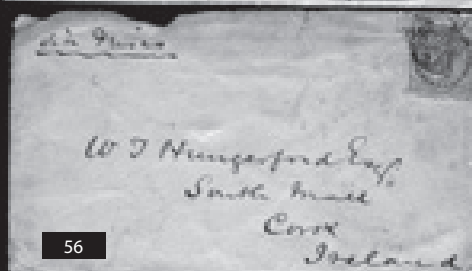 via
W T Hungerford Esq
South Mall
Cork
Ireland
56